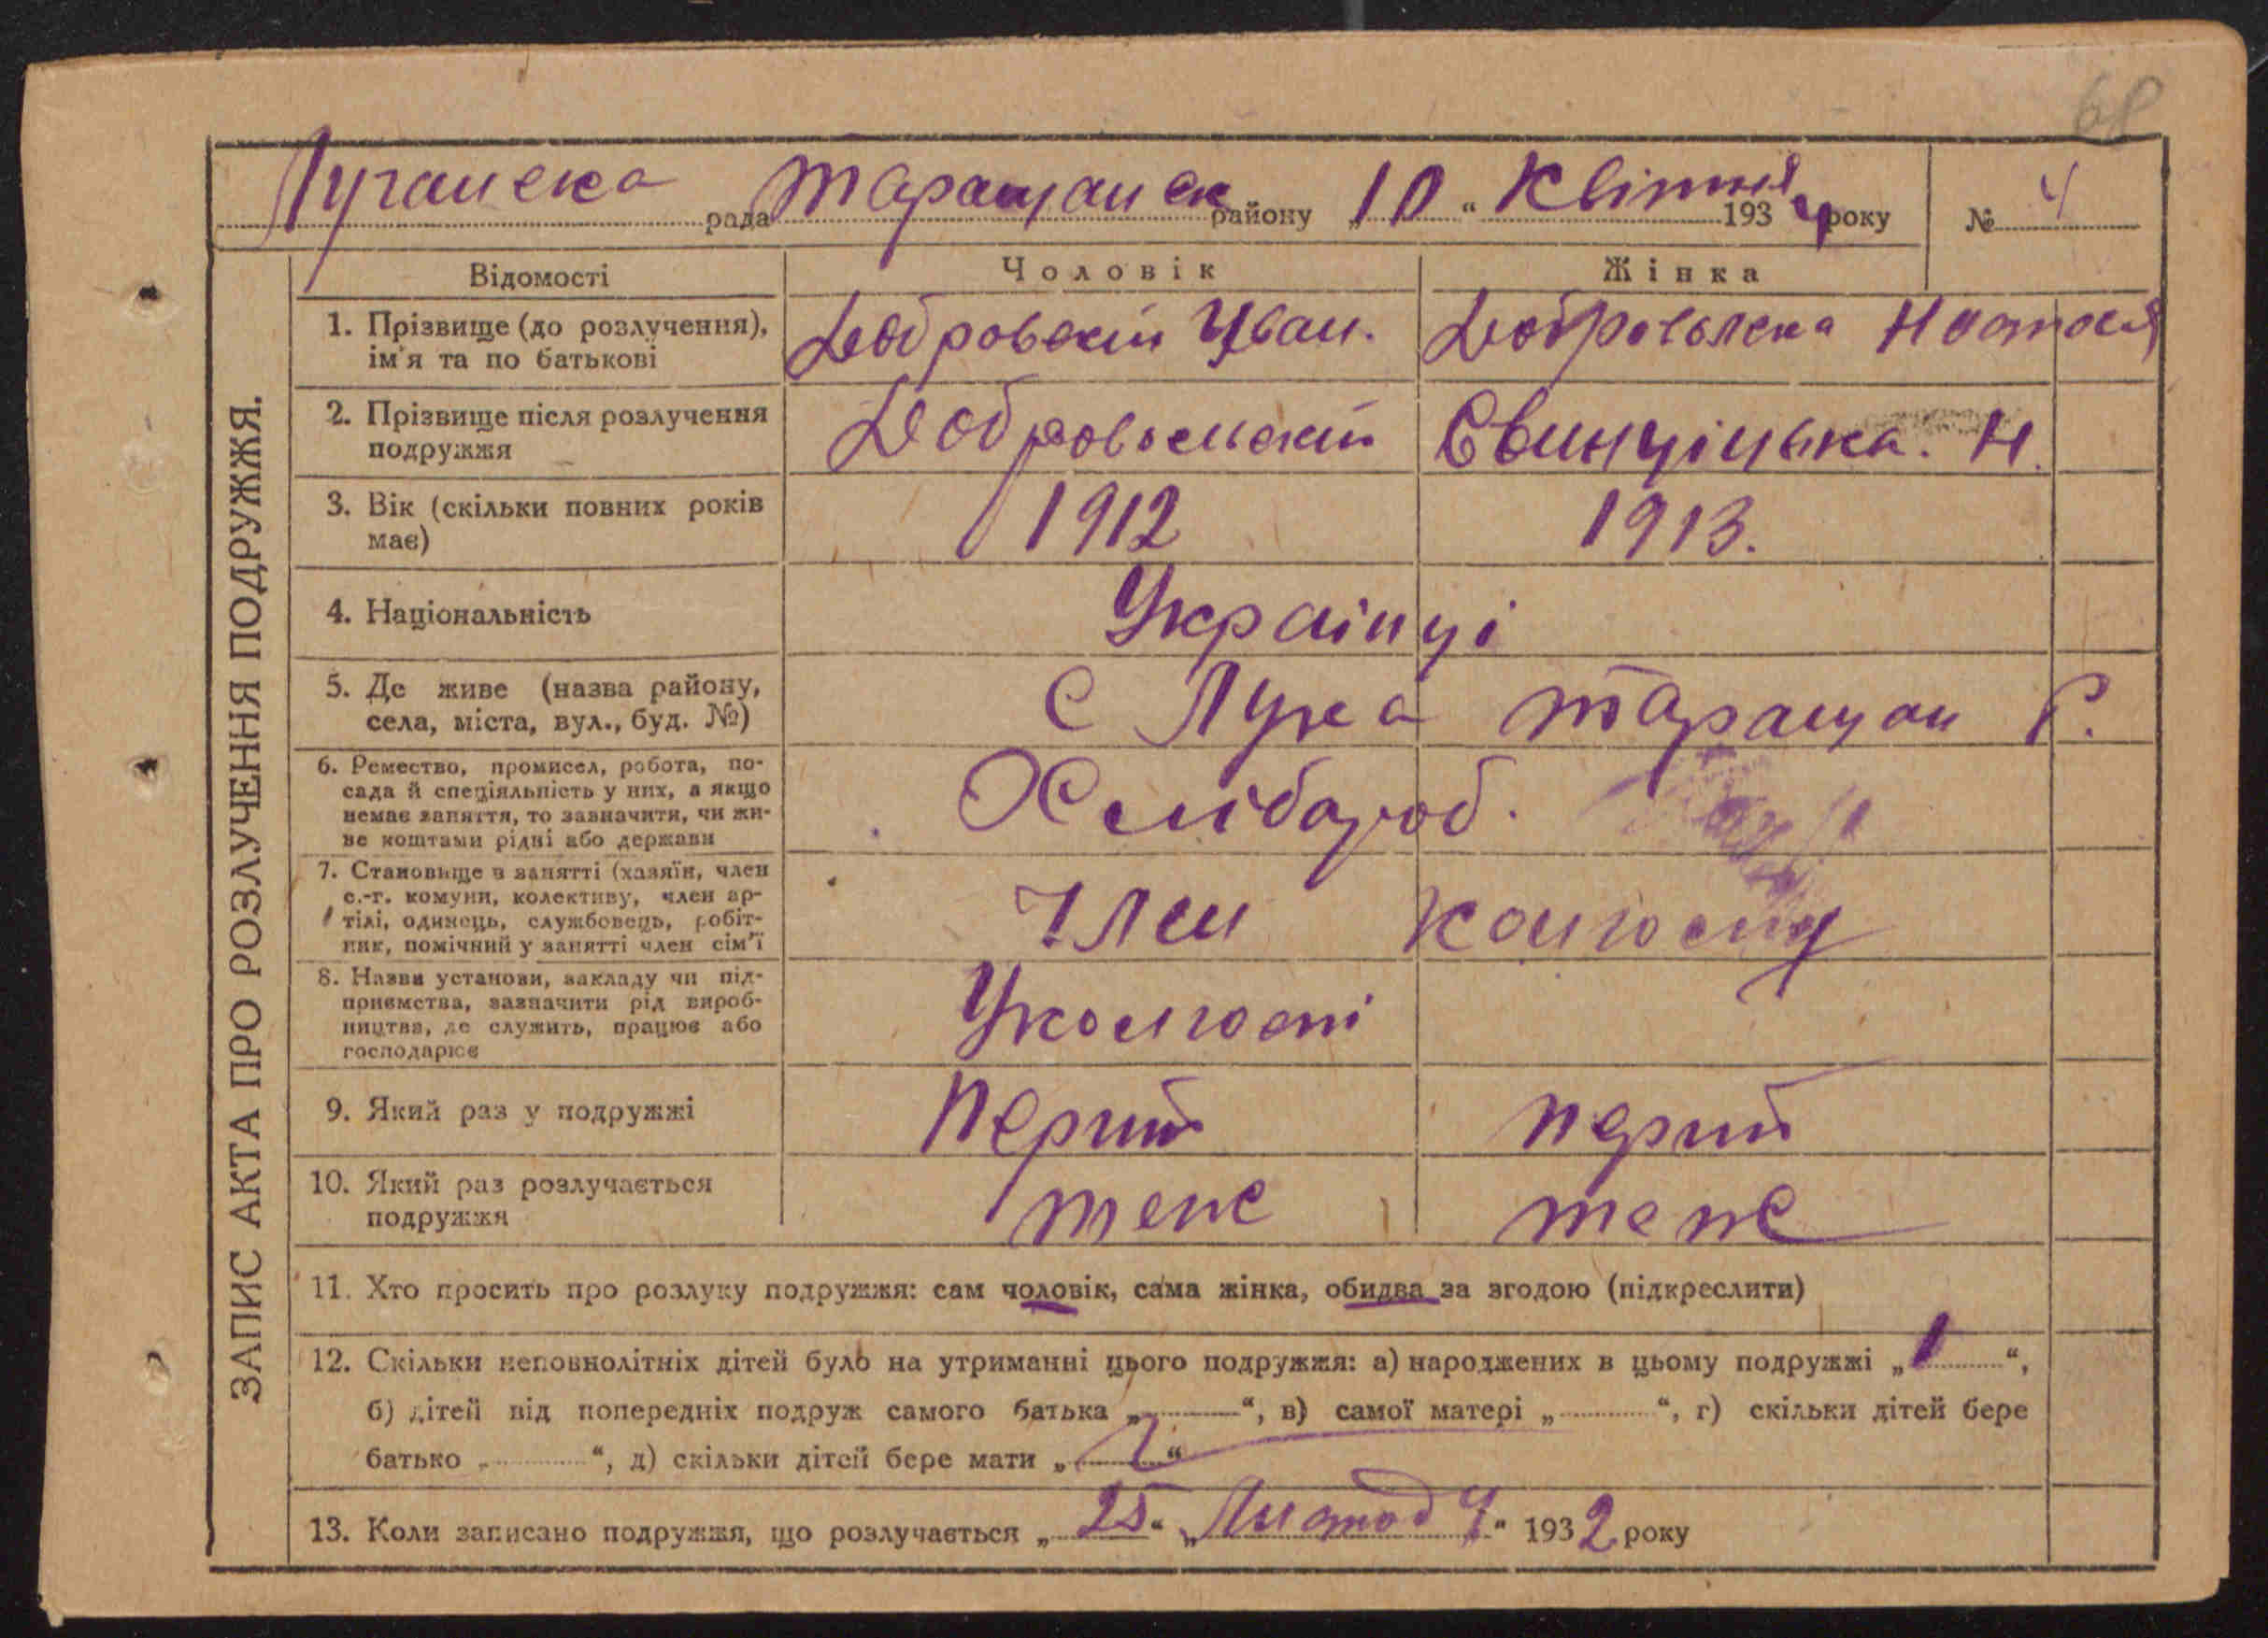 68
Лучанска рада Таращанск району „10“ Квітня 1934 року № 4
ЗАПИС АКТА ПРО РОЗЛУЧЕННЯ ПОДРУЖЖЯ.
Відомості Чоловік Жінка
1. Прізвище (до розлучення), ім'я та по батькові Добровскій Іван. Добровольска Настася
2. Прізвище після розлучення подружжя Добровольскій Свинціцька. Н.
3. Вік (скільки повних років має) 1912 1913.
4. Національність Українці
5. Де живе (назва району, села, міста, вул., буд. №) С Лука Таращан Р.
6. Ремество, промисел, робота, по-
сада й спеціяльність у них, а якщо
немає заняття, то зазначити, чи жи-
ве коштами рідні або держави Хлібороб.
7. Становище в занятті (хазяїн, член
с.-г. комуни, колективу, член ар-
тілі, одинець, службовець, робіт-
ник, помічний у занятті член сім'ї Член
8. Назва установи, закладу чи під-
приємства, зазначити рід вироб-
ництва, де служить, працює або
господарює
9. Який раз у подружжі Перший перший
10. Який раз розлучається подружжя теж теж
11. Хто просить про розлуку подружжя: сам чоловік, сама жінка, обидва за згодою (підкреслити)
12. Скільки неповнолітніх дітей було на утриманні цього подружжя: а) народжених в цьому подружжі „1“,
б) дітей від попередніх подруж самого батька „ “, в) самої матері „ “, г) скільки дітей бере
батько „ “, д) скільки дітей бере мати „1“
13. Коли записано подружжя, що розлучається „25“ „Листопад“ 1932 року